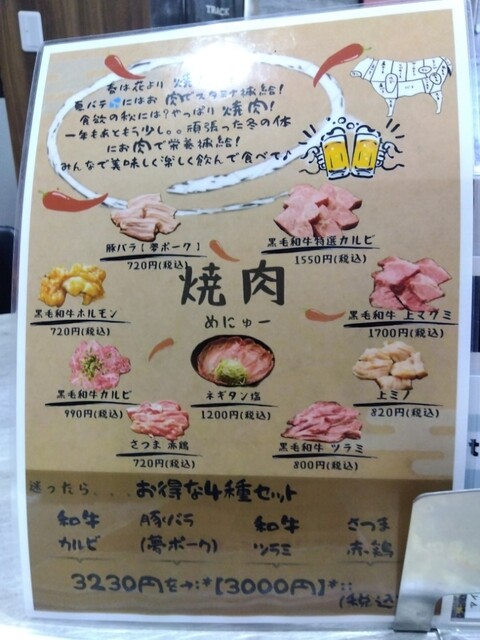 TRACK
春は花より 焼
夏バテ💦にはお 肉でスタミナ補給!
食欲の秋には?やっぱり 焼肉!
一年もあともう少し。。頑張った冬の体
にお肉で栄養補給!
みんなで美味しく楽しく飲んで食べて♪
豚バラ【夢ポーク】
720円(税込)
黒毛和牛特選カルビ
1550円(税込)
焼肉
めにゅー
黒毛和牛ホルモン
720円(税込)
黒毛和牛 上マクミ
1700円(税込)
黒毛和牛カルビ
990円(税込)
ネギタン塩
1200円(税込)
上ミノ
820円(税込)
さつま 赤鶏
720円(税込)
黒毛和牛 ツラミ
800円(税込)
迷ったら、、、お得な4種セット
和牛 豚バラ 和牛 さつま
カルビ (夢ポーク) ツラミ 赤鶏
3230円を→:*【3000円】*::
(税込